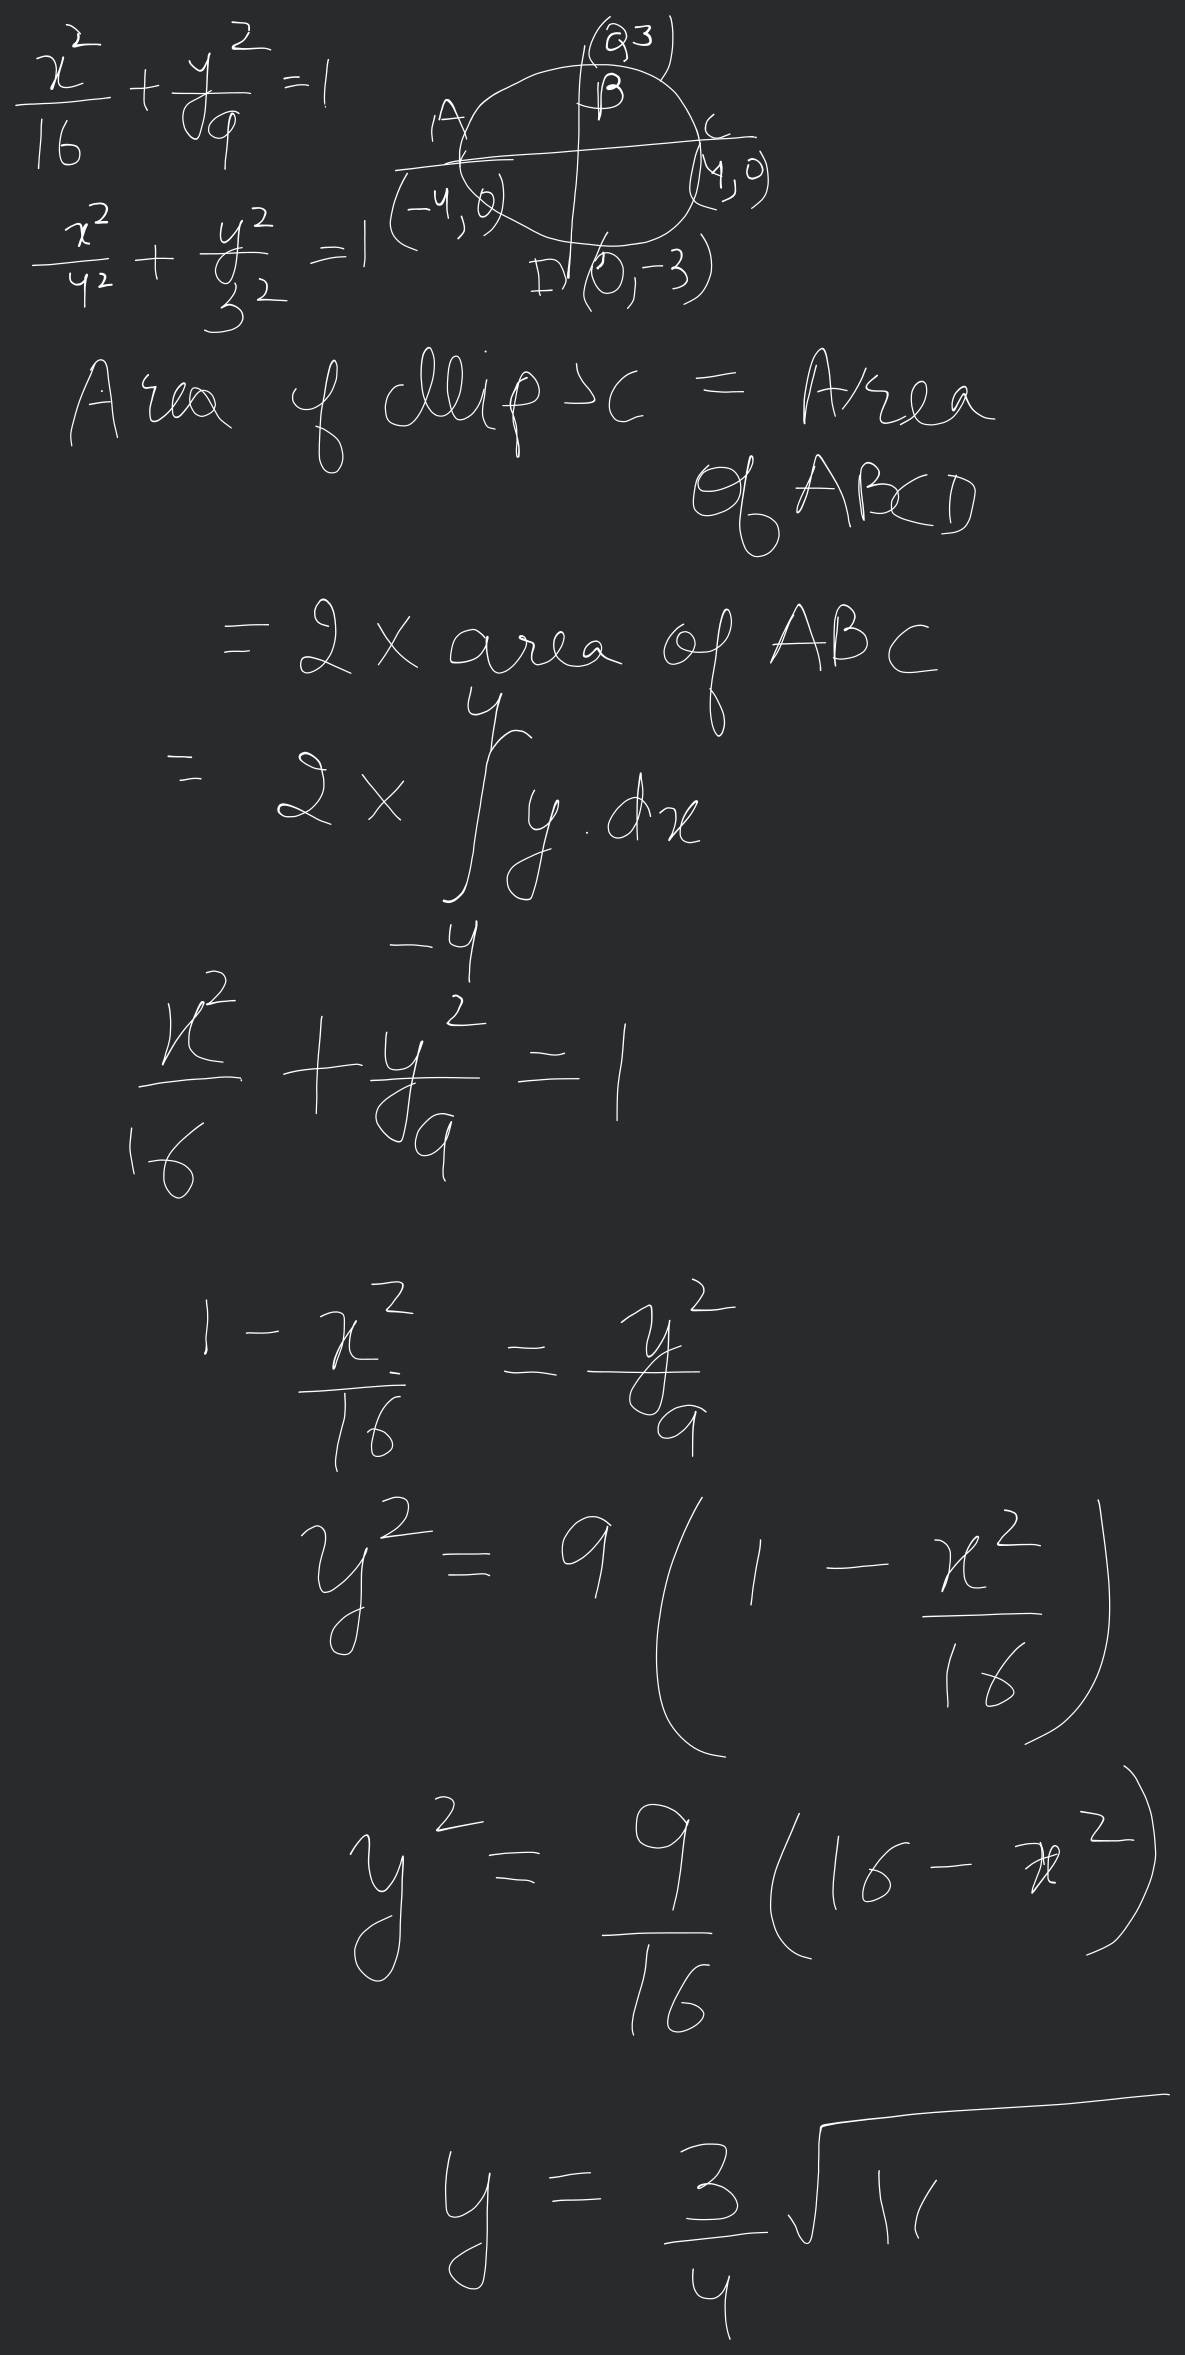 x²/16 + y²/9 = 1
(0,3)
B
A
C
(-4,0)
(4,0)
D (0,-3)
x²/4² + y²/3² = 1
Area of ellipse = Area
of ABCD
= 2 × area of ABC
= 2 × ∫₋₄⁴ y. dx
x²/16 + y²/9 = 1
1 - x²/16 = y²/9
y² = 9 (1 - x²/16)
y² = 9/16 (16 - x²)
y = 3/4 √1